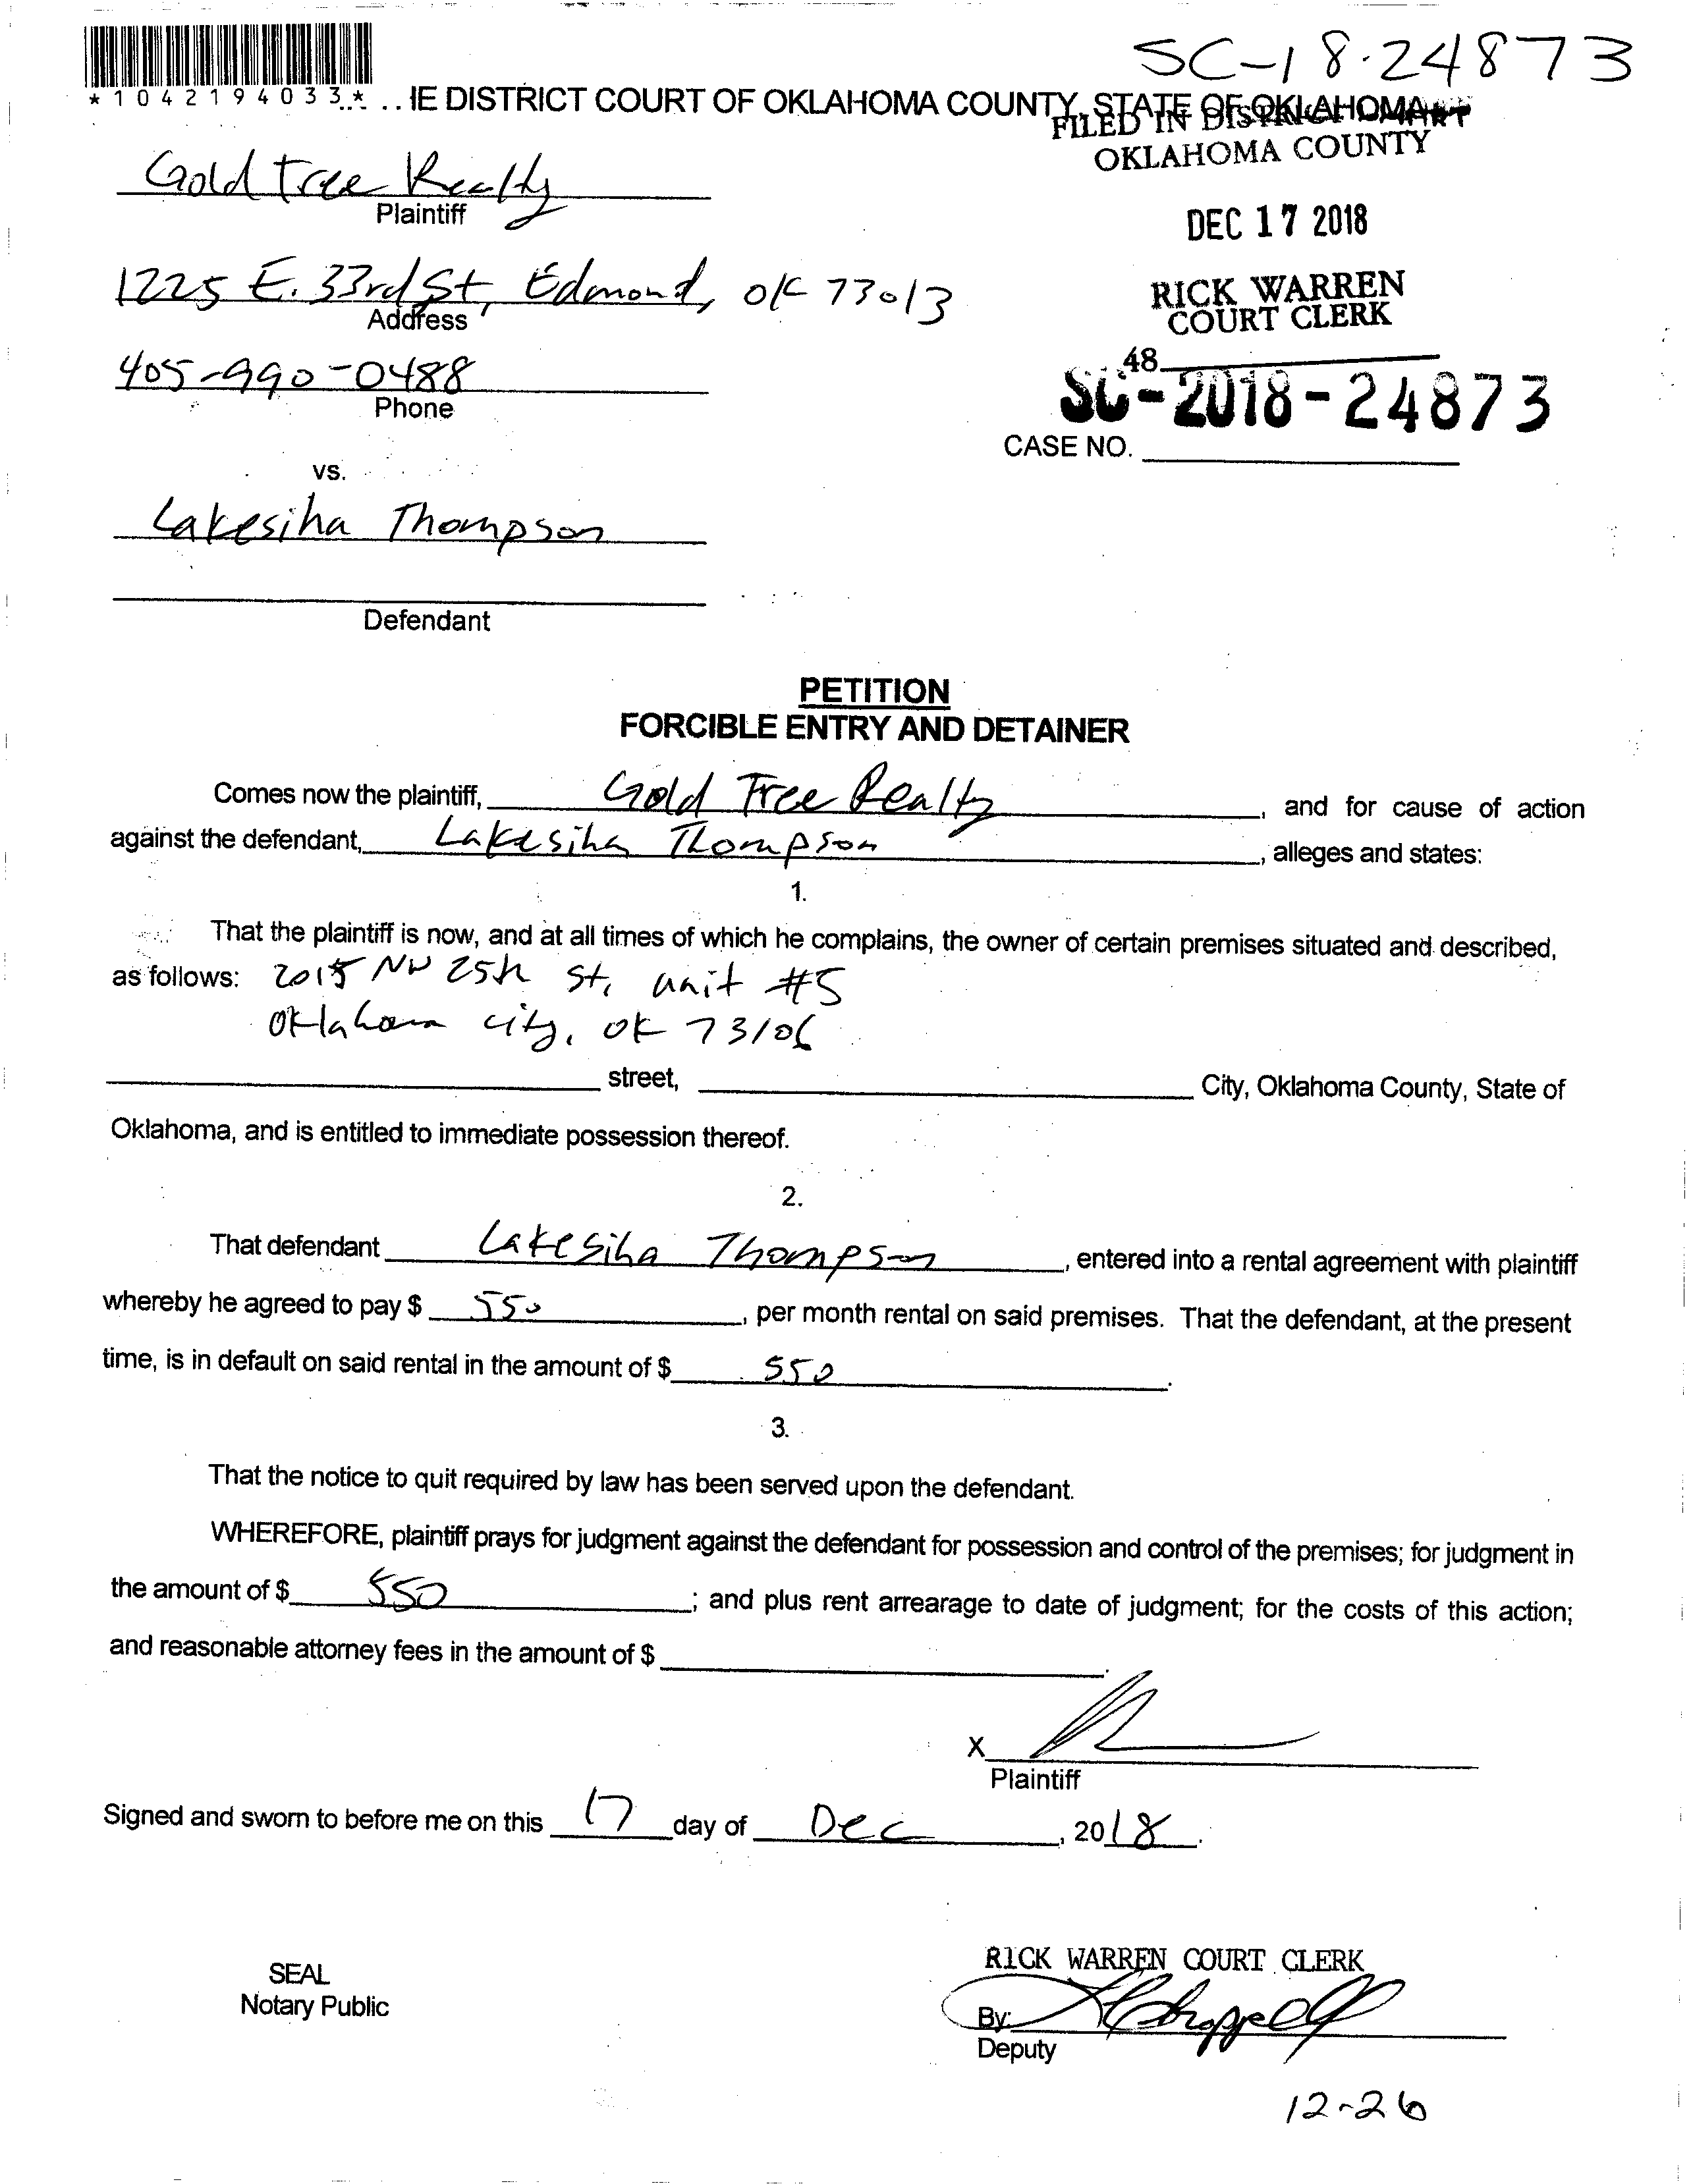 SC-18-24873
*1042194033* IE DISTRICT COURT OF OKLAHOMA COUNTY, STATE OF OKLAHOMA
FILED IN DISTRICT COURT
OKLAHOMA COUNTY
Gold Tree Realty
Plaintiff
DEC 17 2018
1225 E. 33rd St, Edmond, OK 73013
Address
RICK WARREN
COURT CLERK
405-990-0488
Phone
48
SC-2018-24873
CASE NO.
vs.
Lakesiha Thompson
Defendant
PETITION
FORCIBLE ENTRY AND DETAINER
Comes now the plaintiff, Gold Tree Realty, and for cause of action
against the defendant, Lakesiha Thompson, alleges and states:
1.
That the plaintiff is now, and at all times of which he complains, the owner of certain premises situated and described,
as follows: 2015 NW 25th St, unit #5
Oklahoma city, OK 73106
street, City, Oklahoma County, State of
Oklahoma, and is entitled to immediate possession thereof.
2.
That defendant Lakesiha Thompson, entered into a rental agreement with plaintiff
whereby he agreed to pay $ 550, per month rental on said premises. That the defendant, at the present
time, is in default on said rental in the amount of $ 550.
3.
That the notice to quit required by law has been served upon the defendant.
WHEREFORE, plaintiff prays for judgment against the defendant for possession and control of the premises; for judgment in
the amount of $ 550; and plus rent arrearage to date of judgment; for the costs of this action;
and reasonable attorney fees in the amount of $
X
Plaintiff
Signed and sworn to before me on this 17 day of Dec, 2018.
SEAL
Notary Public
RICK WARREN COURT CLERK
By:
Deputy
12-26